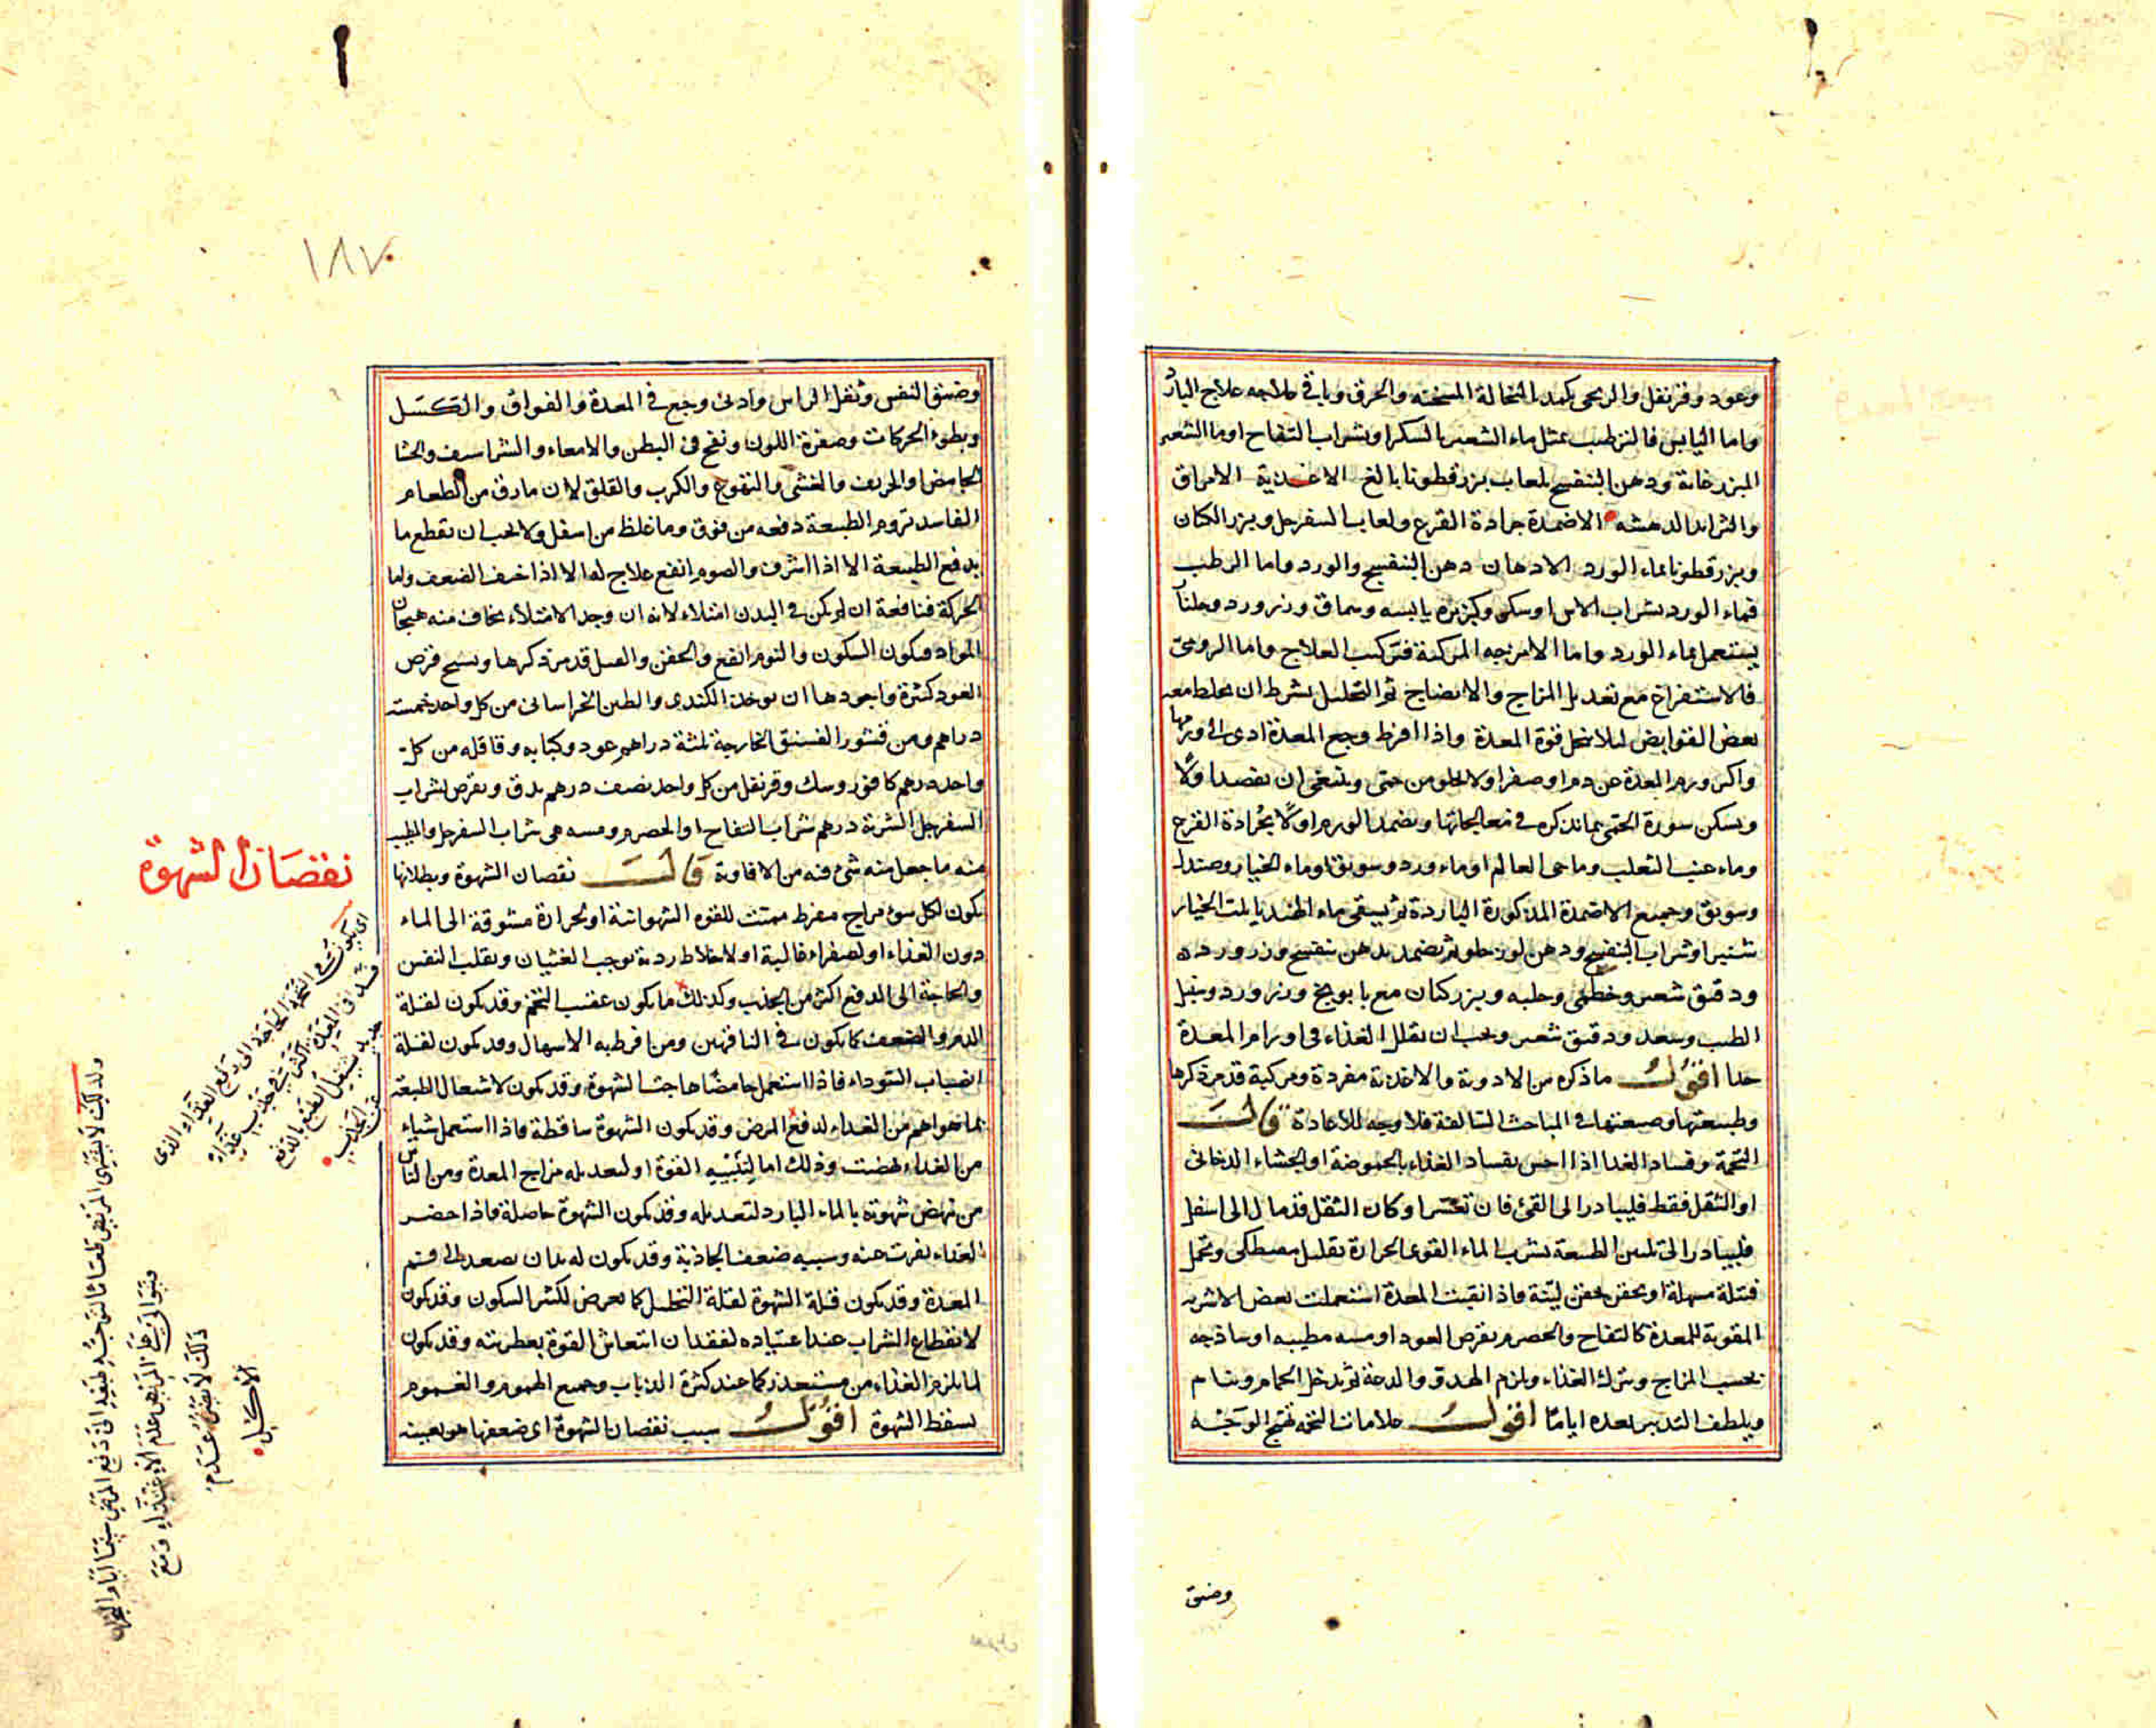 وعود وقرنفل والريحى بكمد النخالة المسخنه والخرق وباقى علاجه علاج البارد
واما اليابس فالترطيب بمثل ماء الشعير بالسكر او شراب التفاح او ماء الشعير
المبزر خاتة ودهن البنفسج بلعاب بزرقطونا بالغ الاغذية الامراق
والثرايد الدهشه الاضمدة جرادة القرع ولعاب السفرجل وبزر الكتان
وبزرقطونا بماء الورد الادهان دهن البنفسج والورد واما الرطب
فماء الورد بشراب الاس او سكر وكزبره يابسه وسماق وزرورد وجلنار
يستعمل بماء الورد واما الامزجه المركبة فتركيب العلاج واما الروحى
فالاستفراغ مع تعديل المزاج والانضاج ثم التحليل بشرط ان يخلط معه
بعض القوابض لئلا تنحل قوة المعدة واذا افرط وجع المعدة ادى الى ورمها
واكثر ورم المعدة عن دم او صفرا ولا يخلو من حمى وينبغى ان يفصد اولا
ويسكن سورة الحمى بما نذكره فى معالجاتها ويضمد الورم اولا بجرادة القرع
وماء عنب الثعلب وماحى العالم او ماء ورد وسويق او ماء الخيار وصندل
وسويق وجميع الاضمدة المذكورة الباردة ثم يسقى ماء الهندبا بلت الخيار
شنبر او شراب البنفسج ودهن لوز حلو ثم يضمد بدهن بنفسج وزرورده
ودقيق شعير وخطمى وحلبه وبزركتان مع بابونج وزرورد وسنبل
الطيب وسعد ودقيق شعير ويجب ان يقلل الغذاء فى اورام المعدة
جدا اقول ما ذكره من الادوية والاغذية مفردة ومركبة قد مر ذكرها
وطبيعتها وصنعتها فى المباحث السالفة فلا وجه للاعادة قال
التخمة وفساد الغذا اذا احس بفساد الغذاء بالحموضة او الجشاء الدخانى
او الثقل فقط فليبادر الى القئ فان تعسر او كان الثقل قد مال الى اسفل
فليبادر الى تليين الطبيعة بشرب الماء القوى الحرارة بقليل مصطكى وتحمل
فتيلة مسهلة او بحقن بحقن لينة فاذا نقيت المعدة استعملت بعض الاشربه
المقوية للمعدة كالتفاح والحصرم بقرص العود او مسه مطيبه او ساذجه
بحسب المزاج ويترك الغذاء ويلزم الهدو والدعة ثم يدخل الحمام وينام
ويلطف التدبير بعده اياما اقول علامات التخمة تهيج الوجه
وضيق
١٨٧
وضيق النفس وثقل الراس وادنى وجع فى المعدة والفواق والكسل
وبطوء الحركات وصفرة اللون ونفخ فى البطن والامعاء والشراسيف والجشا
الحامض او الحريف والغشى والتهوع والكرب والقلق لان ما دق من الطعام
الفاسد تروم الطبيعة دفعه من فوق وما غلظ من اسفل ولا يجب ان يقطع ما
يدفع الطبيعة الا اذا اسرف والصوم انفع علاج لها الا اذا خيف الضعف واما
الحركة فنافعة ان لم يكن فى البدن امتلاء لانه ان وجد الامتلاء يخاف منه هيجان
المواد فيكون السكون والنوم انفع والحقن والعسل قد مر ذكرها ونسخ قرص
العود كثيرة واجودها ان يوخذ الكندى والطين الخراسانى من كل واحد خمسة
دراهم ومن قشور الفستق الخارجة ثلثة دراهم عود وكبابه وقاقله من كل
واحد درهم كافور وسك وقرنفل من كل واحد نصف درهم يدق ويقرص بشراب
السفرجل الشربة درهم بشراب التفاح او الحصرم ومسه هى شراب السفرجل والمطيب
منه ما جعل منه شئ فيه من الافاوية قال نقصان الشهوة وبطلانها
يكون لكل سوء مزاج مفرط مميتت للقوه الشهوانية او لحرارة مشوقة الى الماء
دون الغذاء او لصفراء غالبة او لاخلاط ردية توجب الغثيان وتقلب النفس
والحاجة الى الدفع اكثر من الجذب وكذلك ما يكون عقيب التخم وقد يكون لقلة
الدم والضعف كما يكون فى الناقهين ومن افرط به الاسهال وقد يكون لقلة
انصباب السوداء فاذا استعمل حامضا هاجت الشهوة وقد يكون لاشتغال الطبيعة
بما هو اهم من الغذاء لدفع المرض وقد يكون الشهوة ساقطة فاذا استعمل شياء
من الغذاء نهضت وذلك اما لتنبيه القوة او لتعديله مزاج المعدة ومن الناس
من تنهض شهوته بالماء البارد لتعديله وقد يكون الشهوة حاصلة فاذا حضر
الغذاء نفرت عنه وسببه ضعف الجاذبة وقد يكون لديدان يصعد الى فم
المعدة وقد يكون قلة الشهوة لقلة التحليل كما يعرض لكثير السكون وقد يكون
لانقطاع الشراب عند اعتياده لفقدان انتعاش القوة بعطريته وقد يكون
لما يلزم الغذاء من مستقذر كما عند كثرة الذباب وجميع الهموم والغموم
يسقط الشهوة اقول سبب نقصان الشهوة اى ضعفها هو بعينه
نقصان الشهوة
اى يكون فى التخمة الحاجة الى دفع الغذاء الذى
فسد فى المعدة اكثر من جذب غذاء
جديد يشغل الطبع بالدفع
عن الجذب
ولذلك لا يشتهى المريض طعاما لتوجه طبعه الى دفع المرض
ذلك لا يقتضى عدم
الاكل